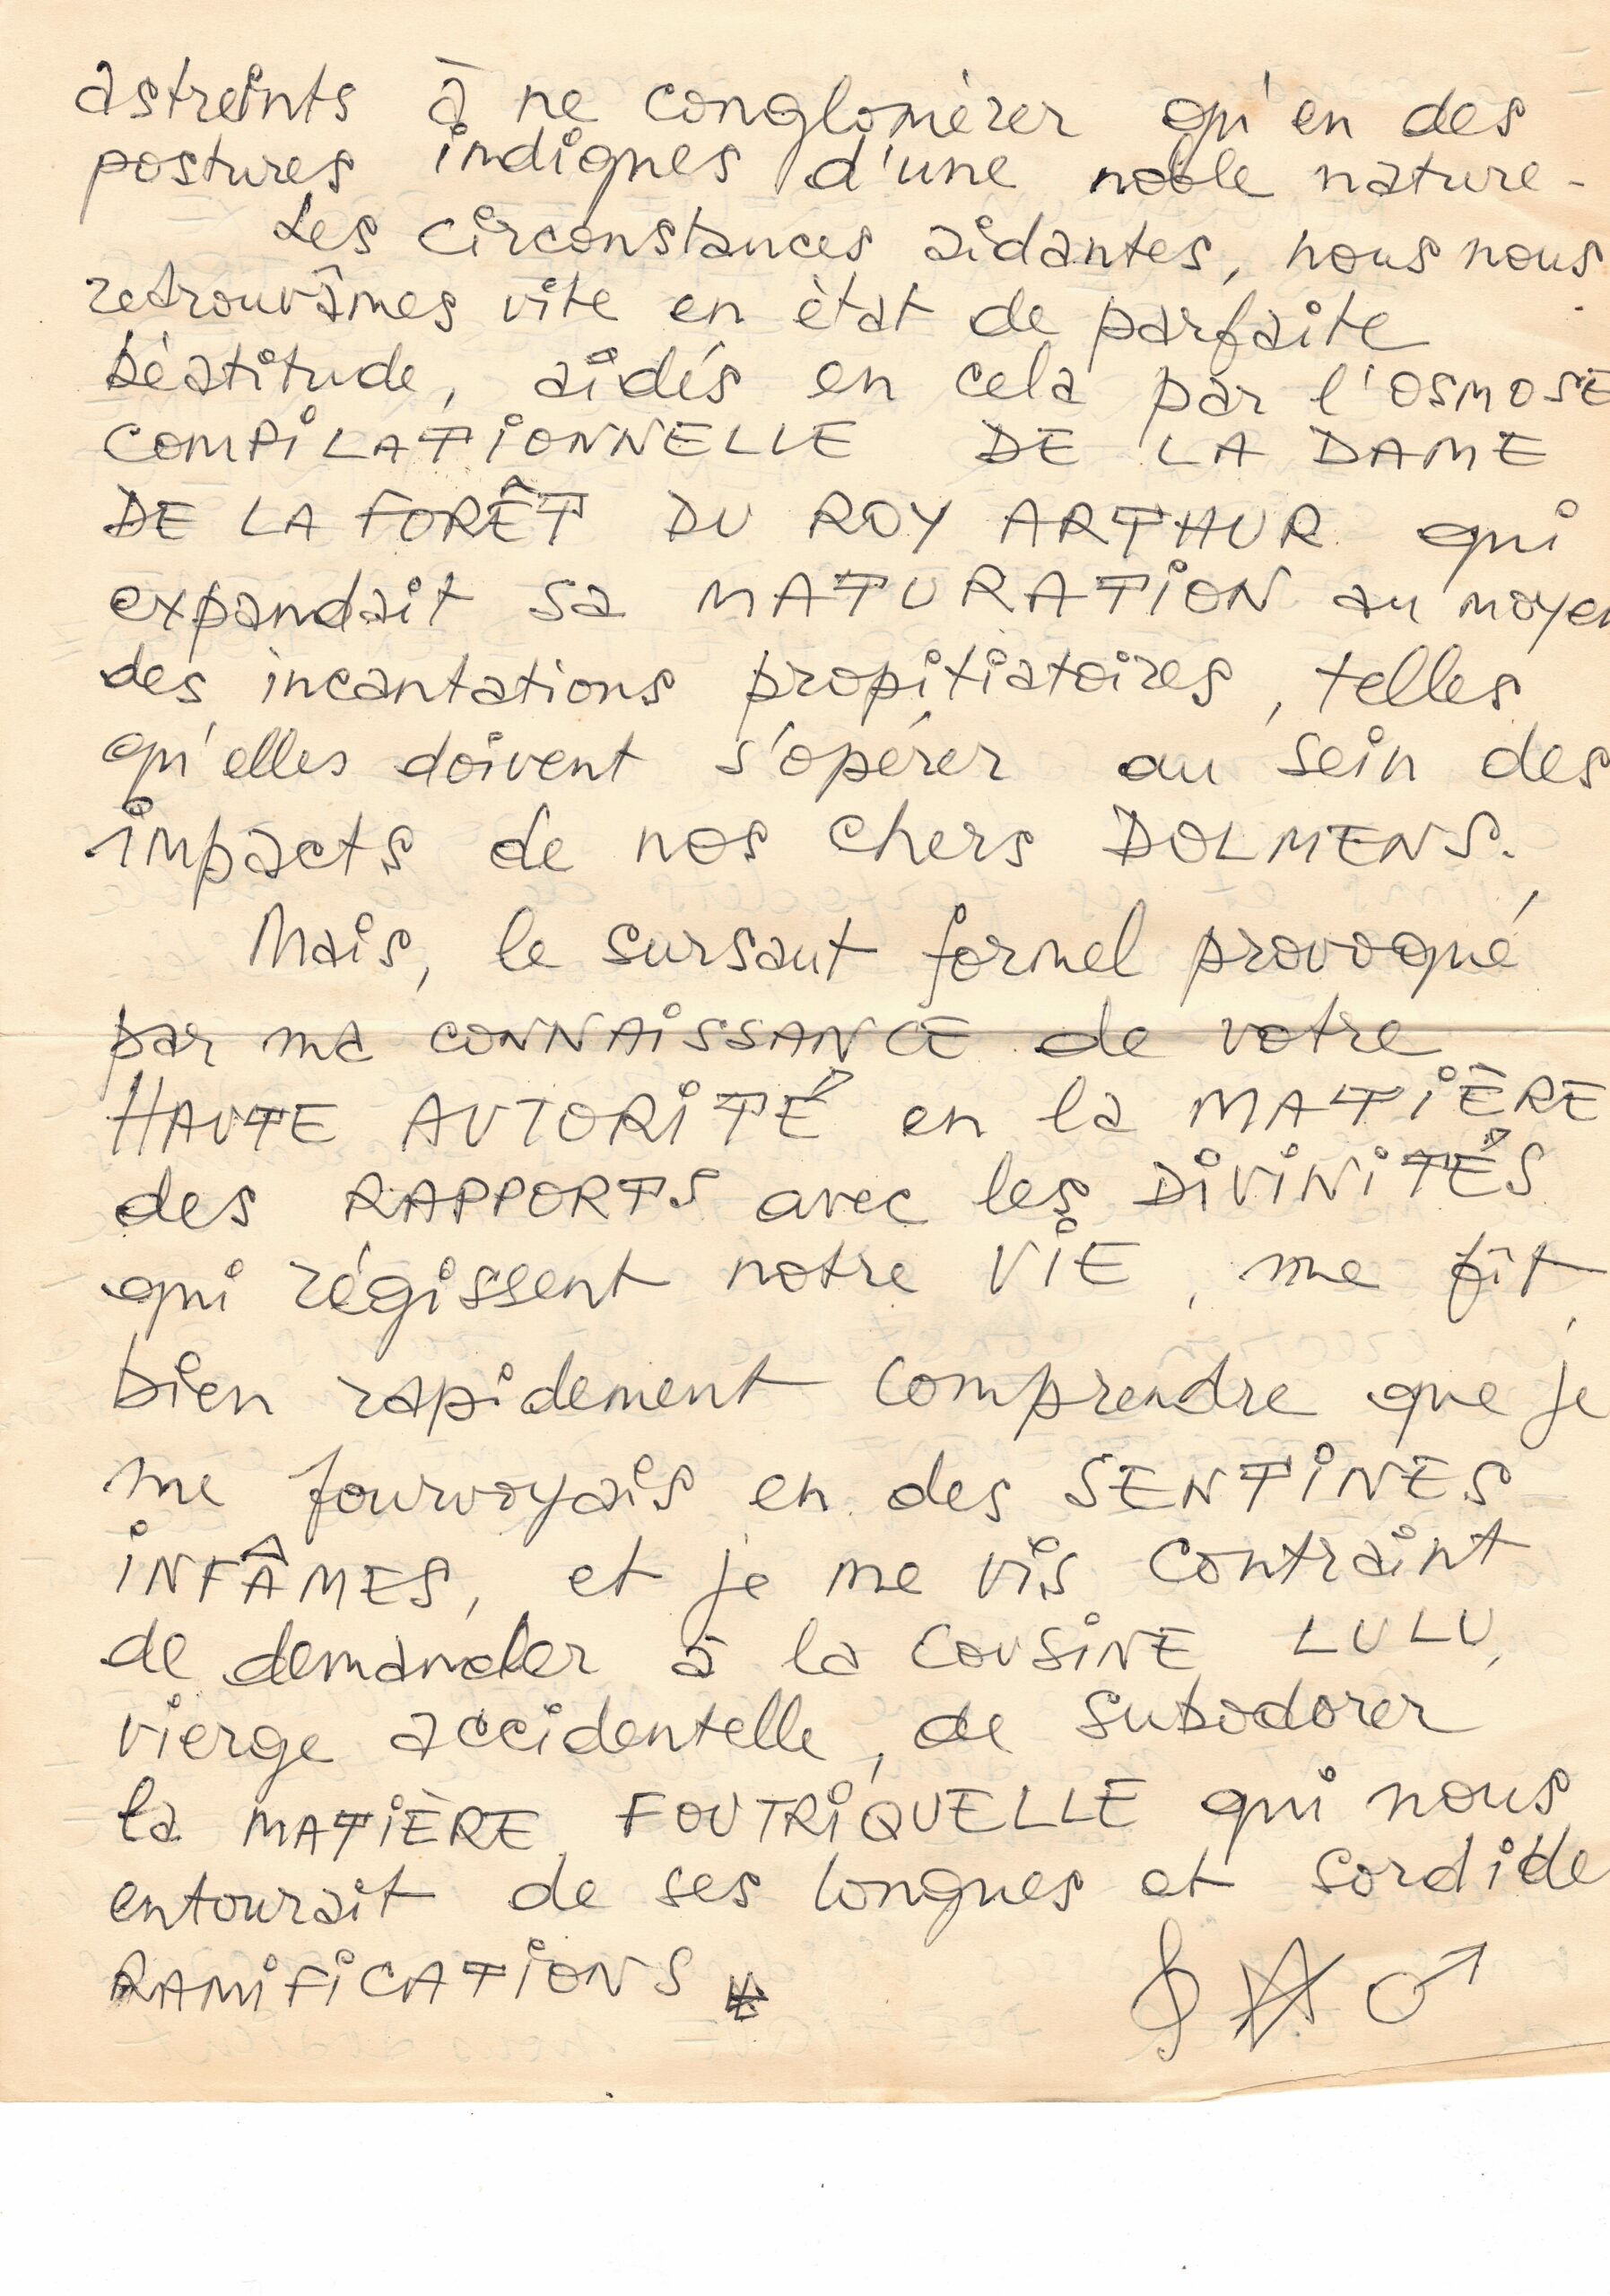 astreints à ne conglomérer qu'en des
postures indignes d'une noble nature.
Les circonstances aidantes, nous nous
retrouvâmes vite en état de parfaite
béatitude, aidés en cela par l'OSMOSE
COMPiLATiONNELLE DE LA DAME
DE LA FORÊT DU ROY ARTHUR qui
expandait sa MATURATiON au moyen
des incantations propitiatoires, telles
qu'elles doivent s'opérer au sein des
impacts de nos chers DOLMENS.
Mais, le sursaut formel provoqué
par ma CONNAiSSANCE de votre
HAUTE AUTORiTÉ en la MATiÈRE
des RAPPORTS avec les DiViNiTÉS
qui régissent notre ViE, me fît
bien rapidement comprendre que je
me fourvoyais en des SENTiNES
iNFÂMES, et je me vis contraint
de demander à la COUSiNE LULU,
vierge accidentelle, de subodorer
la MATiÈRE FOUTRiQUELLE qui nous
entourait de ses longues et sordide
RAMiFiCATiONS